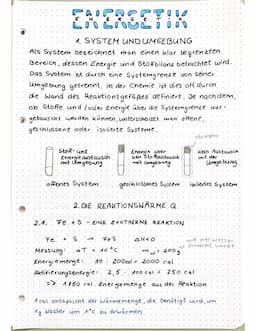 ENERGETIK
1. SYSTEM UND UMGEBUNG
Als System bezeichnet man einen klar begrenzten
Bereich, dessen Energie und Stoffbilanz betrachtet wird.
Das System ist durch eine Systemgrenze von seiner
Umgebung getrennt. In der Chemie ist dies oft durch
die Wand des Reaktionsgefäßes definiert. Je nachdem,
ob Stoffe und/oder Energie über die Systemgrenze aus-
getauscht werden können, unterscheidet man offene,
geschlossene oder isolierte Systeme.
Stoff- und
Energieaustausch
mit Umgebung
Energie aber
kein Stoffaustausch
mit Umgebung
kein Austausch
mit der
Umgebung
offenes System
geschlossenes System
isoliertes System
2. DIE REAKTIONSWÄRME Q
2.1. Fe + S - EINE EXOTHERME REAKTION
Fe + S → FeS ΔH<0
Messung: ΔT = 10°C m = 200g
Energiemenge: 10 · 200cal = 2000 cal
Aktivierungsenergie: 2,5 · 100 cal = 250 cal
=> 1750 cal Energiemenge aus der Reaktion
1 cal entspricht der Wärmemenge, die benötigt wird, um
1g Wasser um 1°C zu erwärmen